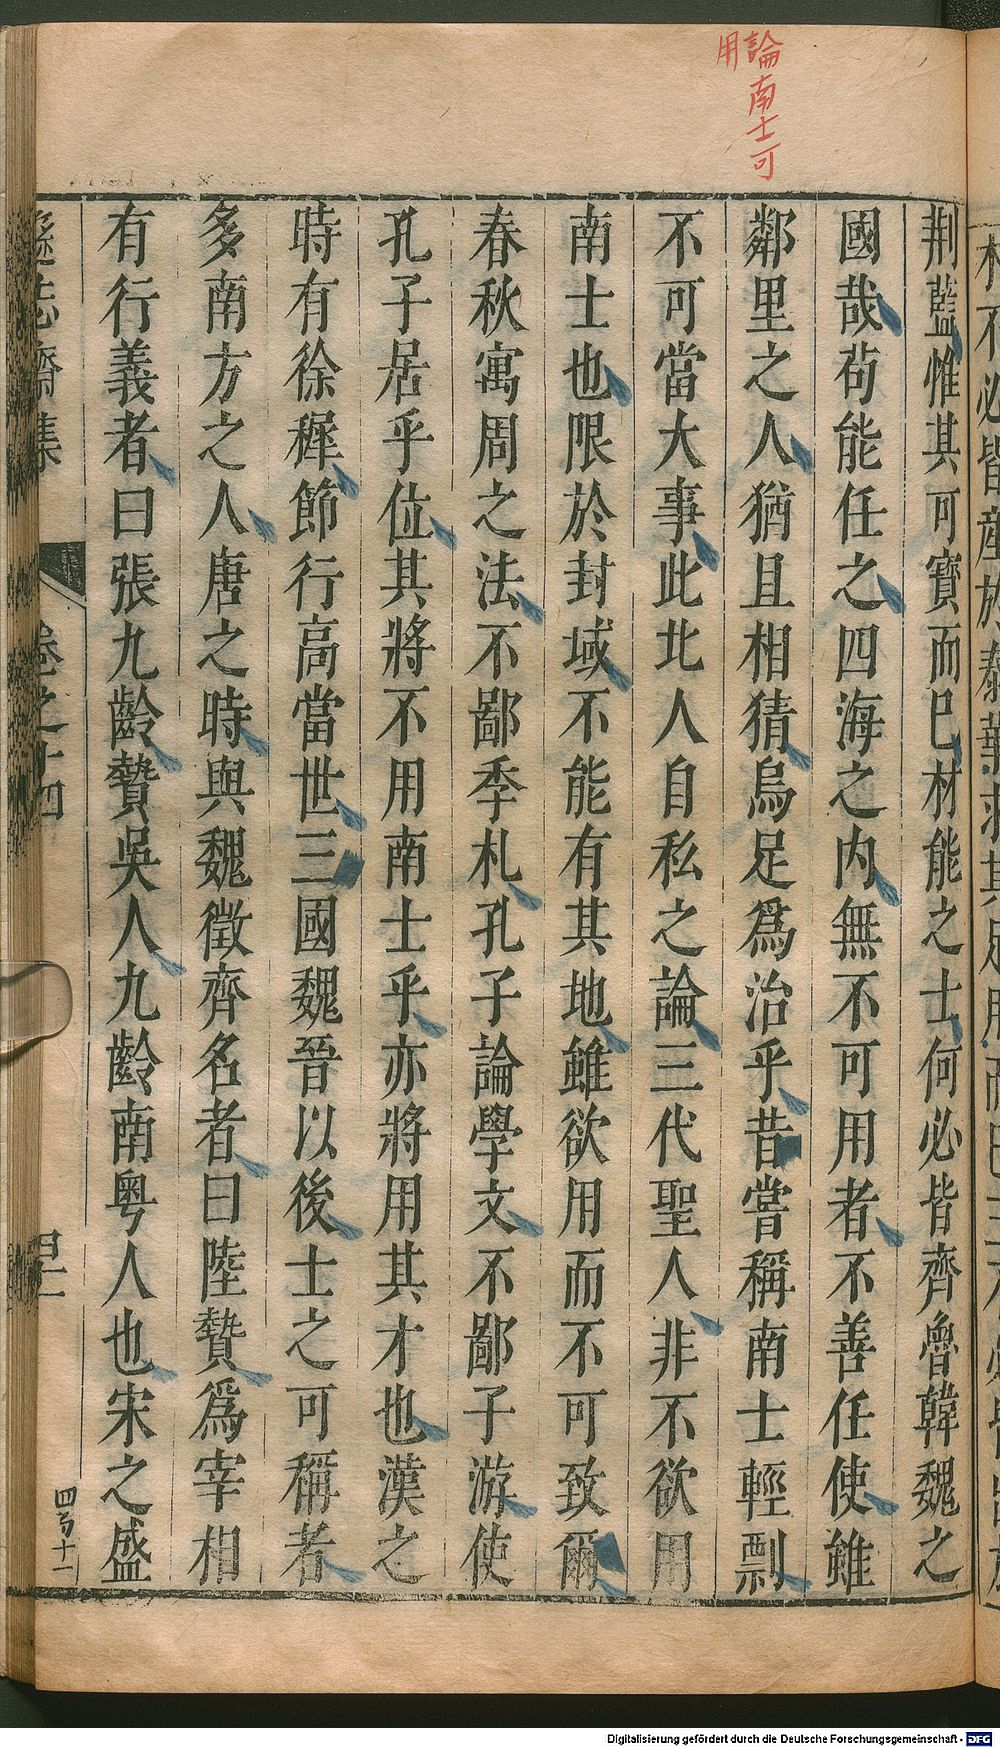 論南士可
用
荆藍惟其可寶而巳材能之士何必皆齊魯韓魏之
國哉苟能任之四海之内無不可用者不善任使雖
鄰里之人猶且相猜烏足爲治乎昔嘗稱南士輕剽
不可當大事此北人自私之論三代聖人非不欲用
南士也限於封域不能有其地雖欲用而不可致爾
春秋寓周之法不鄙季札孔子論學文不鄙子游使
孔子居乎位其將不用南士乎亦將用其才也漢之
時有徐穉節行高當世三國魏晉以後士之可稱者
多南方之人唐之時與魏徵齊名者曰陸贄爲宰相
有行義者曰張九齡贄吳人九齡南粤人也宋之盛
遜志齋集
卷之十四
Digitalisierung gefördert durch die Deutsche Forschungsgemeinschaft - DFG